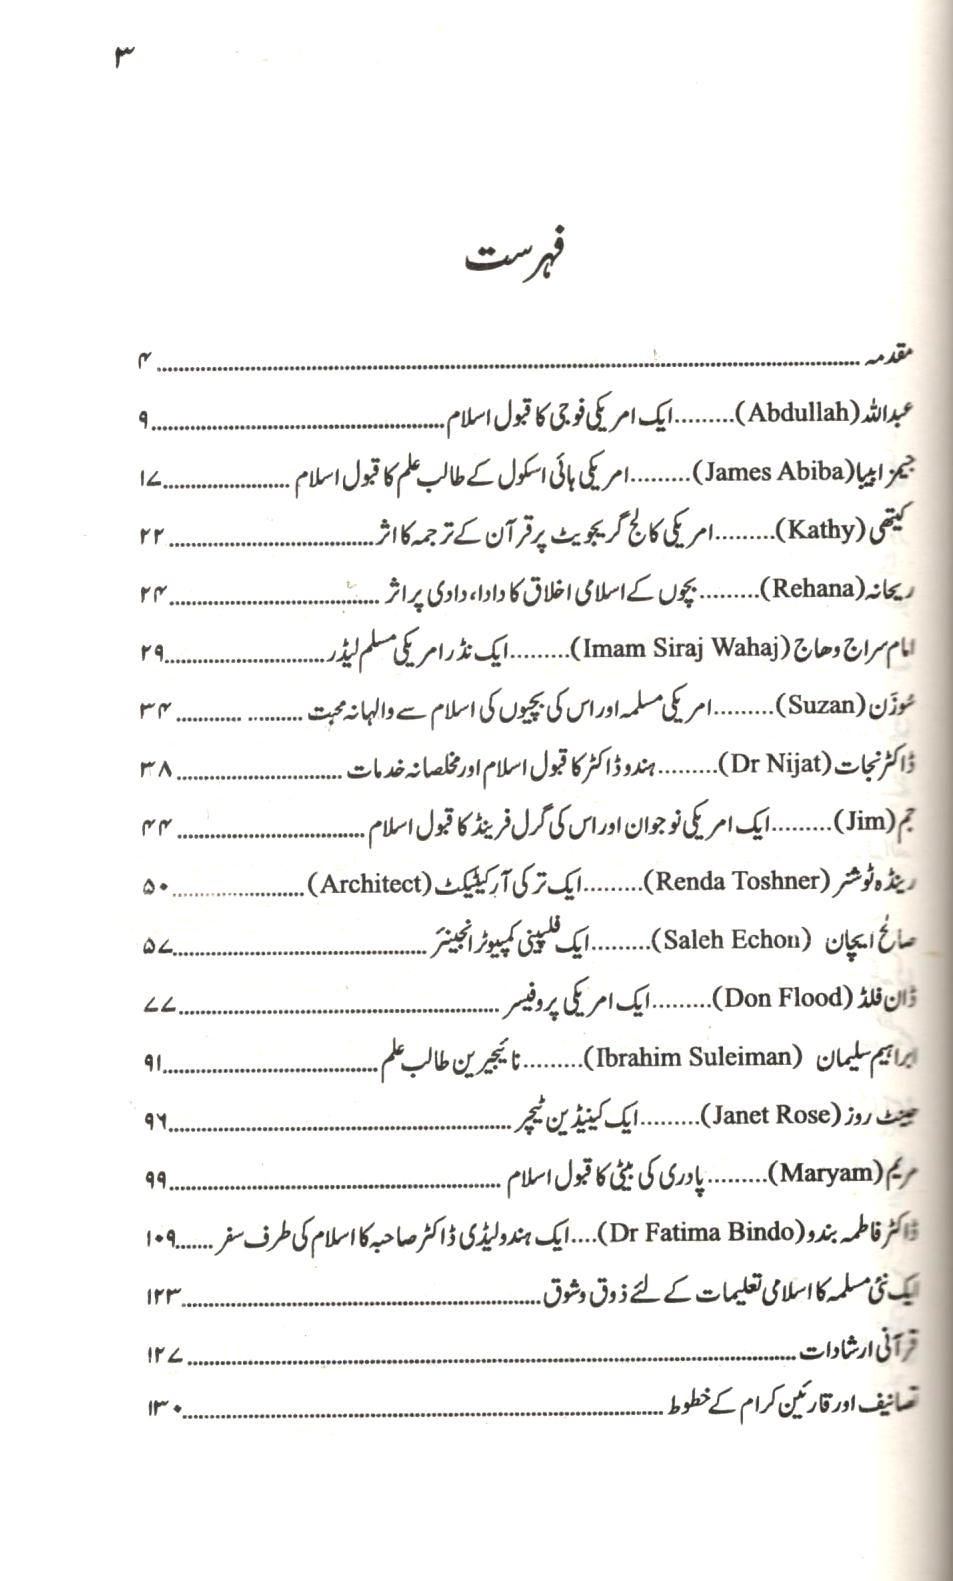 ۳
فہرست
مقدمہ ........ ۴
عبداللہ (Abdullah).........ایک امریکی فوجی کا قبول اسلام........۹
جیمز ابیبا (James Abiba).........امریکی ہائی اسکول کے طالب علم کا قبول اسلام ........۱۷
کیتھی (Kathy).........امریکی کالج گریجویٹ پر قرآن کے ترجمہ کا اثر........۲۲
ریحانہ (Rehana).........بچوں کے اسلامی اخلاق کا دادا، دادی پر اثر ........۲۴
امام سراج وھاج (Imam Siraj Wahaj).........ایک نڈر امریکی مسلم لیڈر........۲۹
سُوزَن (Suzan).........امریکی مسلمہ اور اس کی بچیوں کی اسلام سے والہانہ محبت ........۳۴
ڈاکٹر نجات (Dr Nijat).........ہندو ڈاکٹر کا قبول اسلام اور مخلصانہ خدمات ........۳۸
جم (Jim).........ایک امریکی نوجوان اور اس کی گرل فرینڈ کا قبول اسلام ........۴۴
رینڈہ ٹوشنر (Renda Toshner).........ایک ترکی آرکیٹیکٹ (Architect)........۵۰
صالح ایچان (Saleh Echon).........ایک فلپینی کمپیوٹر انجینئر........۵۷
ڈان فلڈ (Don Flood).........ایک امریکی پروفیسر ........۷۷
ابراہیم سلیمان (Ibrahim Suleiman).........نائیجیرین طالب علم........۹۱
جینٹ روز (Janet Rose).........ایک کینیڈین ٹیچر........۹۶
مریم (Maryam).........پادری کی بیٹی کا قبول اسلام ........۹۹
ڈاکٹر فاطمہ بندو (Dr Fatima Bindo)....ایک ہندو لیڈی ڈاکٹر صاحبہ کا اسلام کی طرف سفر.......۱۰۹
ایک نئی مسلمہ کا اسلامی تعلیمات کے لئے ذوق و شوق........۱۲۳
قرآنی ارشادات ........۱۲۷
تصانیف اور قارئین کرام کے خطوط ........۱۳۰